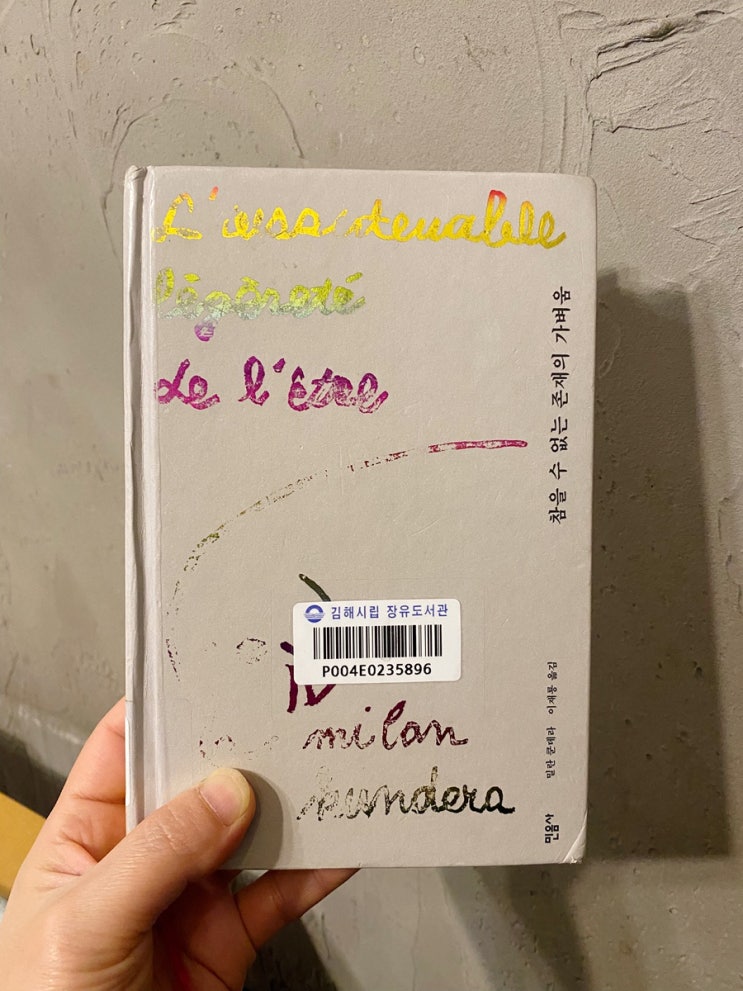 L'insoutenable
légèreté
de l'être
참을 수 없는 존재의 가벼움
김해시립 장유도서관
P004E0235896
milan
kundera
밀란 쿤데라 이재룡 옮김
민음사